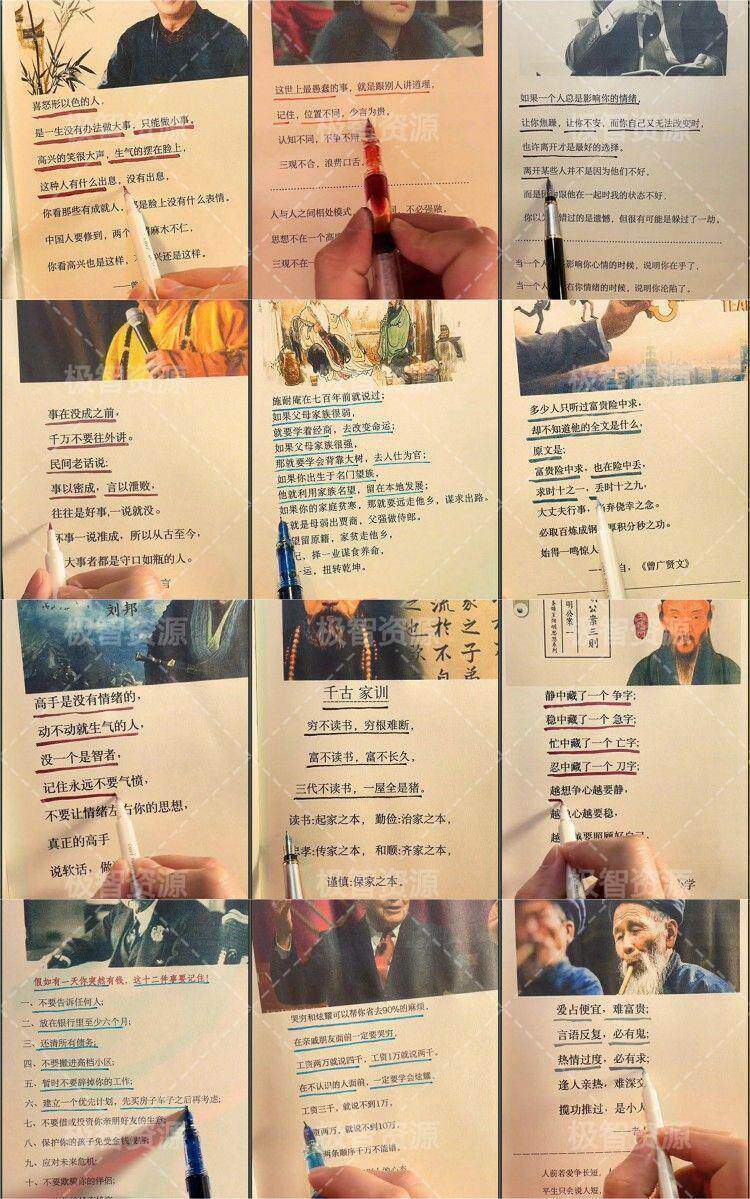 喜怒形以色的人,
是一生没有办法做大事,只能做小事,
高兴的笑很大声,生气的摆在脸上,
这种人有什么出息,没有出息,
你看那些有成就人,都是脸上没有什么表情。
中国人要修到,两个 麻木不仁,
你看高兴也是这样,不 兴还是这样。
这世上最愚蠢的事,就是跟别人讲道理,
记住,位置不同,少言为贵,
认知不同,不争不辩
三观不合,浪费口舌
人与人之间相处模式 同,不必强融,
思想不在一个高
三观不在一
如果一个人总是影响你的情绪,
让你焦躁,让你不安,而你自己又无法改变时,
也许离开才是最好的选择。
离开某些人并不是因为他们不好,
而是因为跟他在一起时我的状态不好,
你以为错过的是遗憾,但很有可能是躲过了一劫,
当一个人 影响你心情的时候,说明你在乎了,
当一个人 在你情绪的时候,说明你沦陷了。
事在没成之前,
千万不要往外讲。
民间老话说;
事以密成,言以泄败,
往往是好事,一说就没。
坏事一说准成,所以从古至今,
大事者都是守口如瓶的人。
言
TEA
施耐庵在七百年前就说过;
如果父母家族很弱,
就要学着经商,去改变命运;
如果父母家族很强,
那就要学会背靠大树,去人仕为官;
如果你出生于名门望族,
他就利用家族名望,留在本地发展;
如果你的家庭贫寒,那就要远走他乡,谋求出路。
就是母弱出贾商,父强做侍郎。
望留原籍,家贫走他乡,
择一业谋食养命,
运,扭转乾坤。
多少人只听过富贵险中求,
却不知道他的全文是什么,
原文是;
富贵险中求,也在险中丢,
求时十之一,丢时十之九,
大丈夫行事, 弃侥幸之念。
必取百炼成钢 厚积分秒之功。
始得一鸣惊人
自,《曾广贤文》
刘邦
高手是没有情绪的,
动不动就生气的人,
没一个是智者,
记住永远不要气愤,
不要让情绪左右你的思想,
真正的高手
说软话,做
千古 家训
穷不读书,穷根难断,
富不读书,富不长久,
三代不读书,一屋全是猪。
读书:起家之本, 勤俭:治家之本,
忠孝:传家之本, 和顺:齐家之本,
谨慎:保家之本。
明公案一
公案三则
静中藏了一个 争字;
稳中藏了一个 急字;
忙中藏了一个 亡字;
忍中藏了一个 刀字;
越想争心越要静,
越 心越要稳,
越 要照顾好自己,
学
假如有一天你突然有钱,这十二件事要记住!
一、不要告诉任何人;
二、放在银行里至少六个月;
三、还清所有债务;
四、不要搬进高档小区;
五、暂时不要辞掉你的工作;
六、建立一个优先计划,先买房子车子之后再考虑;
七、不要借或投资你亲朋好友的生意;
八、保护你的孩子免受金钱 ;
九、应对未来危机;
十、不要欺骗你的伴侣;
哭穷和炫耀可以帮你省去90%的麻烦,
在亲戚朋友面前一定要哭穷,
工资两万就说四千,工资1万就说两千。
在不认识的人面前,一定要学会炫耀,
工资三千,就说不到1万,
工资两万,就说不到10万,
两条顺序千万不能错,
爱占便宜,难富贵;
言语反复,必有鬼;
热情过度,必有求;
逢人亲热,难深交
揽功推过,是小人
人前若爱争长短,人
平生只会说人短,
极智资源